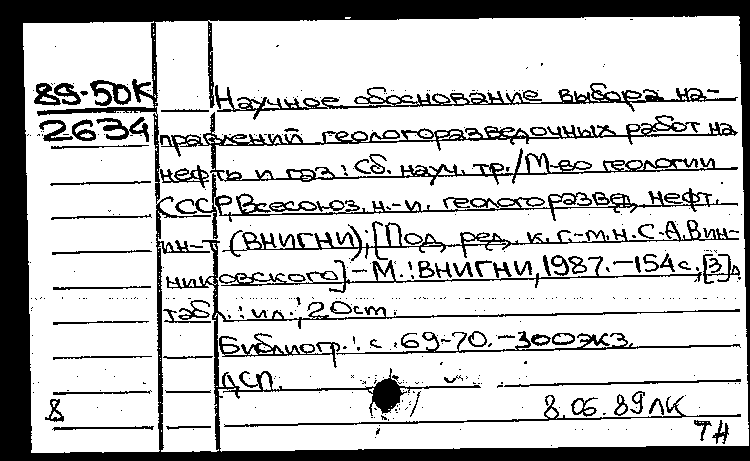 89-50К
2634
Научное обоснование выбора на-
правлений геологоразведочных работ на
нефть и газ: Сб. науч. тр./М-во геологии
СССР, Всесоюз. н.-и. геологоразвед. нефт.
ин-т (ВНИГНИ); [Под ред. к. г.-м. н. С. А. Вин-
никовского] - М.: ВНИГНИ, 1987. - 154 с., [3] л.
табл.: ил.; 20 см.
Библиогр.: с. 69-70. - 300 экз.
ДСП.
8
8.06.89 ЛК